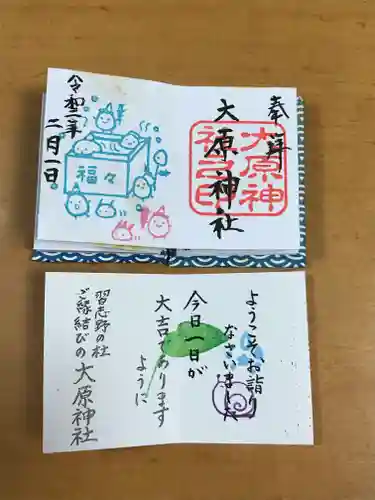 奉拝
大原神社
大原神
社之印
福々
令和二年
二月一日
ようこそお詣り
なさいました
今日一日が
大吉であります
ように
習志野の杜
ご縁結びの大原神社